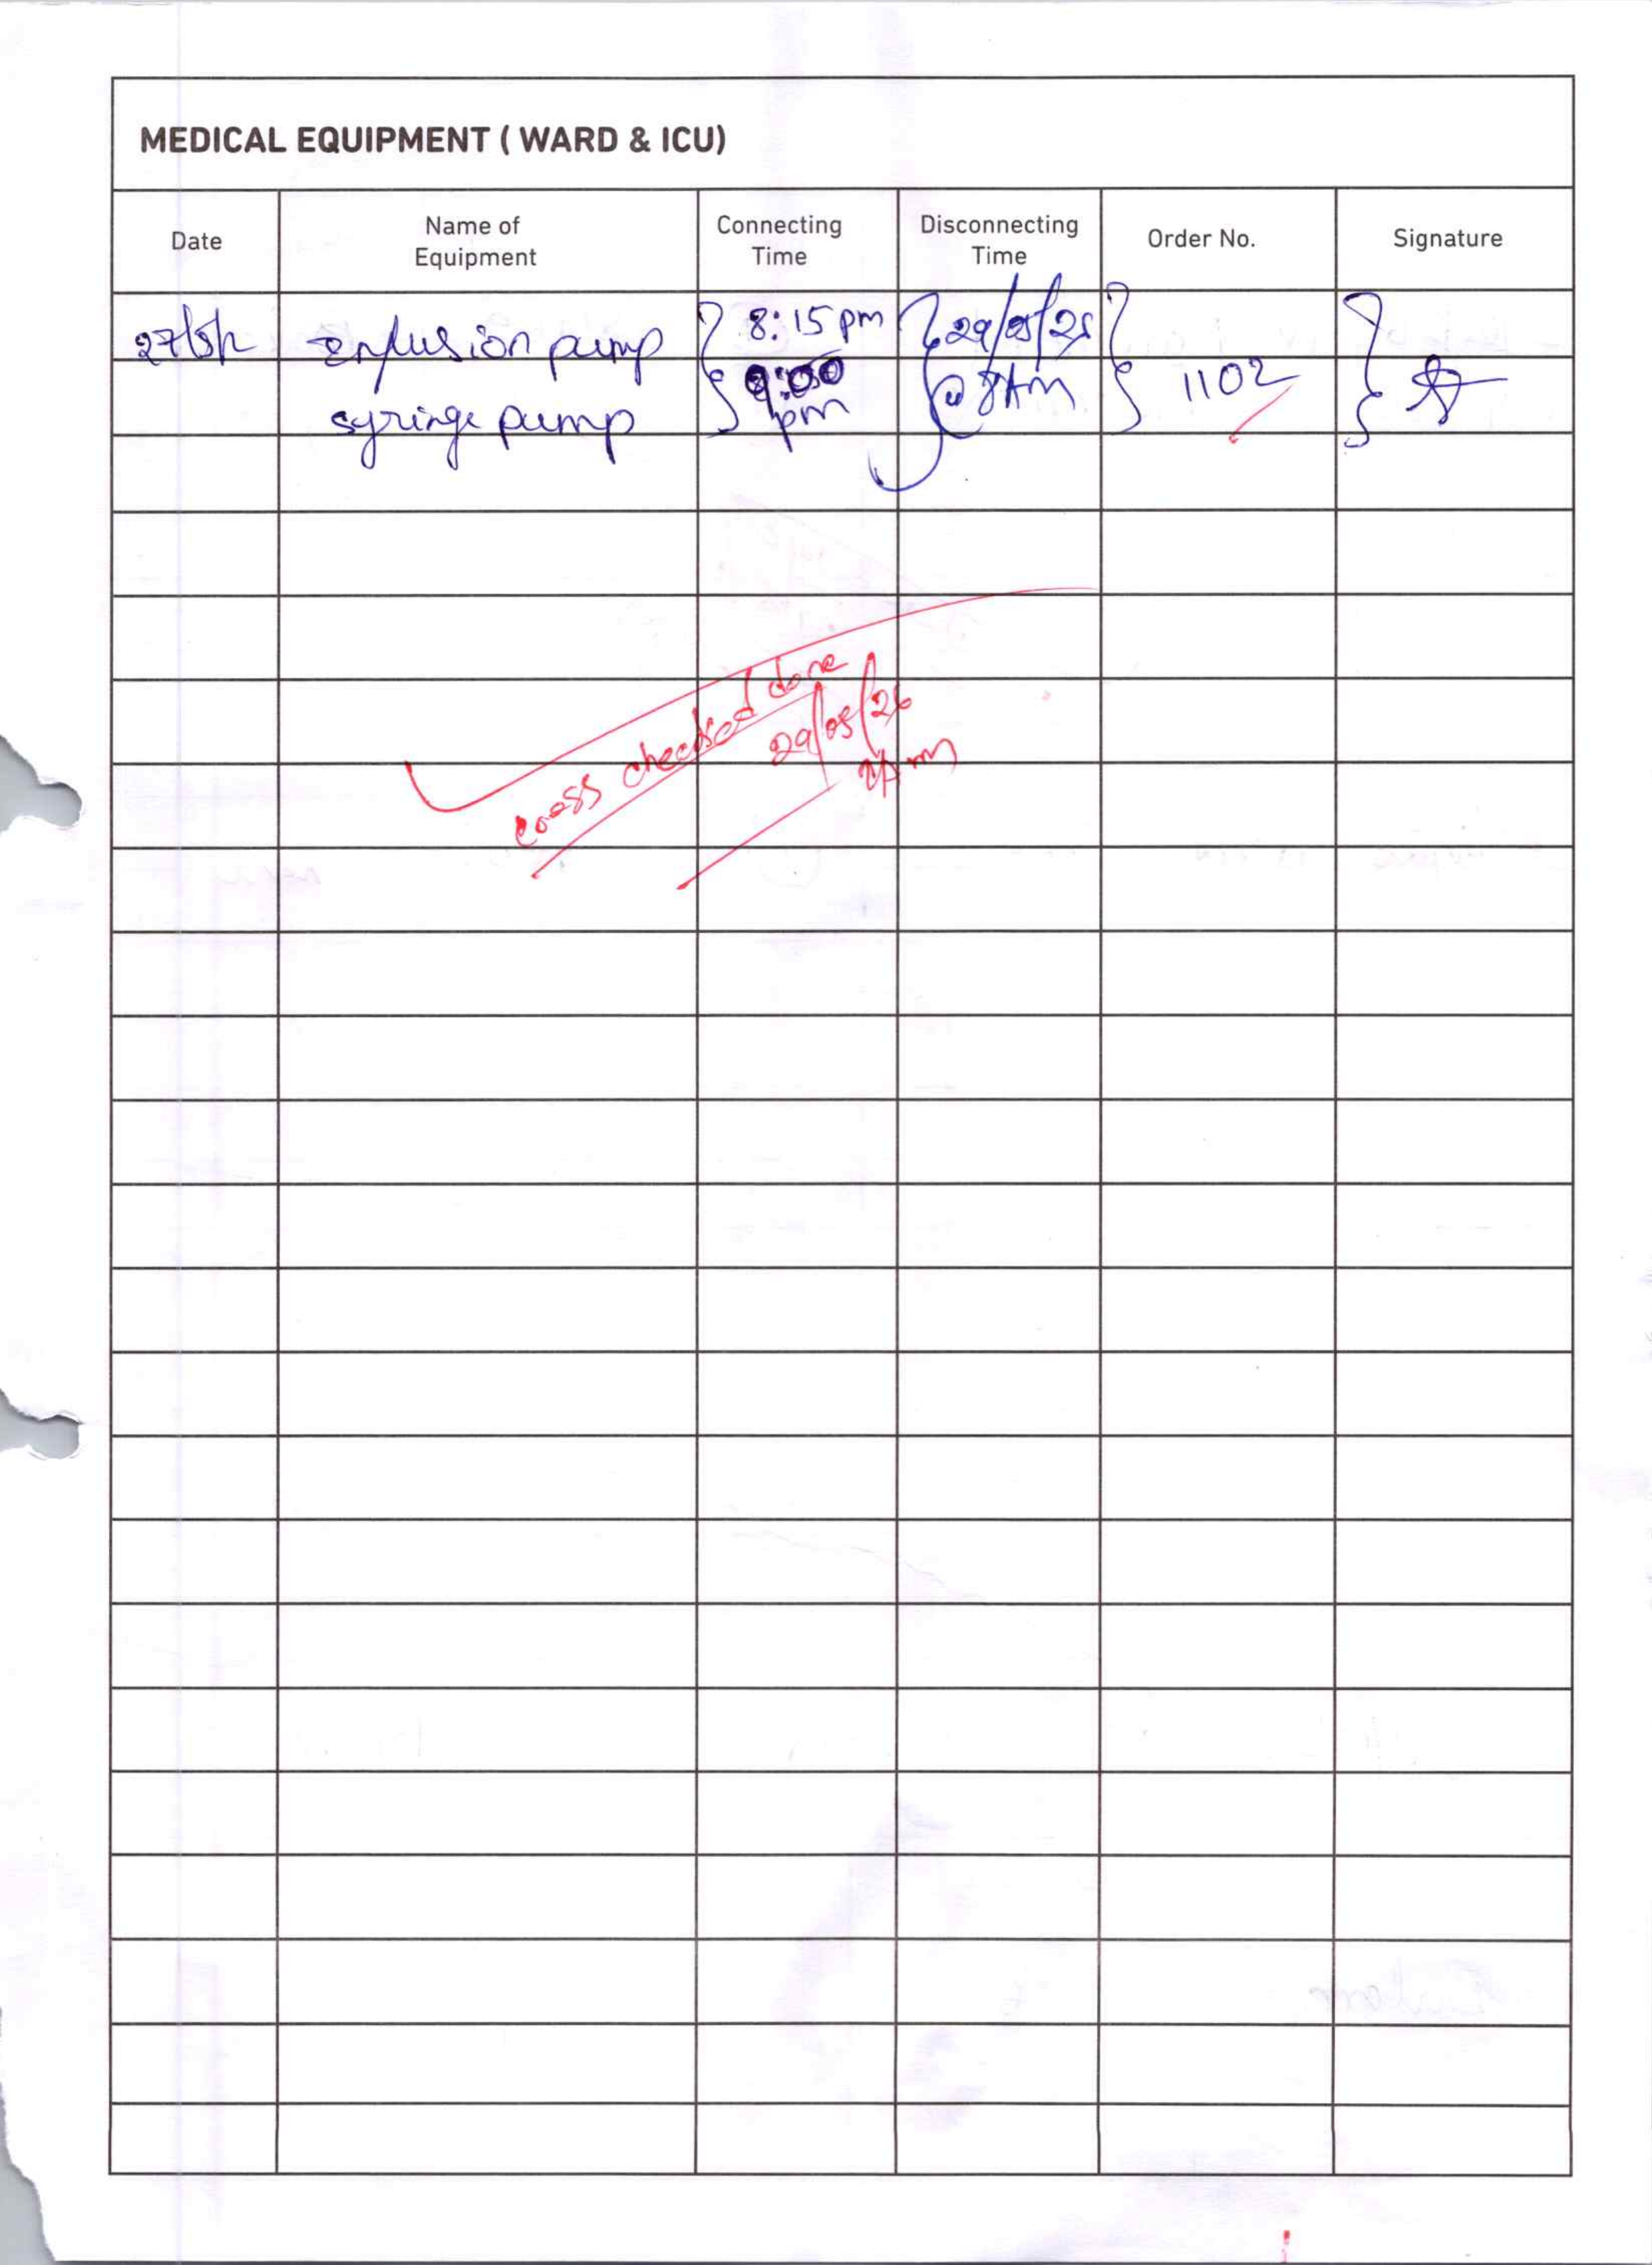 MEDICAL EQUIPMENT ( WARD & ICU)
Date Name of Equipment Connecting Time Disconnecting Time Order No. Signature
Infusion pump 8:15 pm 29/05/25
syringe pump 9:00 pm @ 8AM 1102
cross checked done
29/05/26